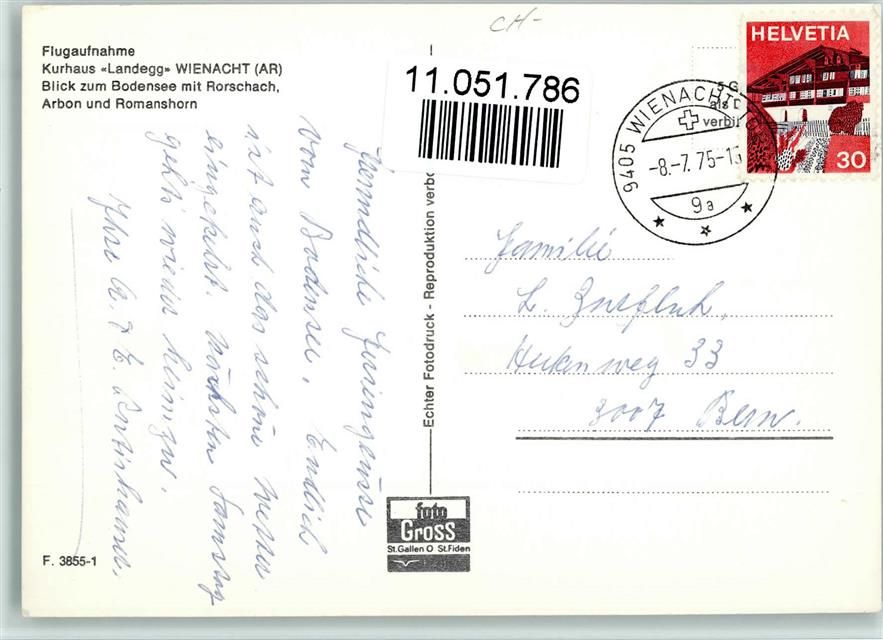 CH-
Flugaufnahme
Kurhaus «Landegg» WIENACHT (AR)
Blick zum Bodensee mit Rorschach,
Arbon und Romanshorn
11.051.786
HELVETIA
30
9405 WIENACHT
-8.-7.75-1
9a
5G
als
verbi
Freundliche Feriengrüsse
vom Bodensee. Endlich
ist auch das schöne Wetter
eingekehrt. Nächsten Samstag
gehts wieder heimzu.
Ihre
Echter Fotodruck - Reproduktion verbo
Familie
L. Zurfluh,
33
3007 Bern.
foto
Gross
St.Gallen O St.Fiden
F. 3855-1